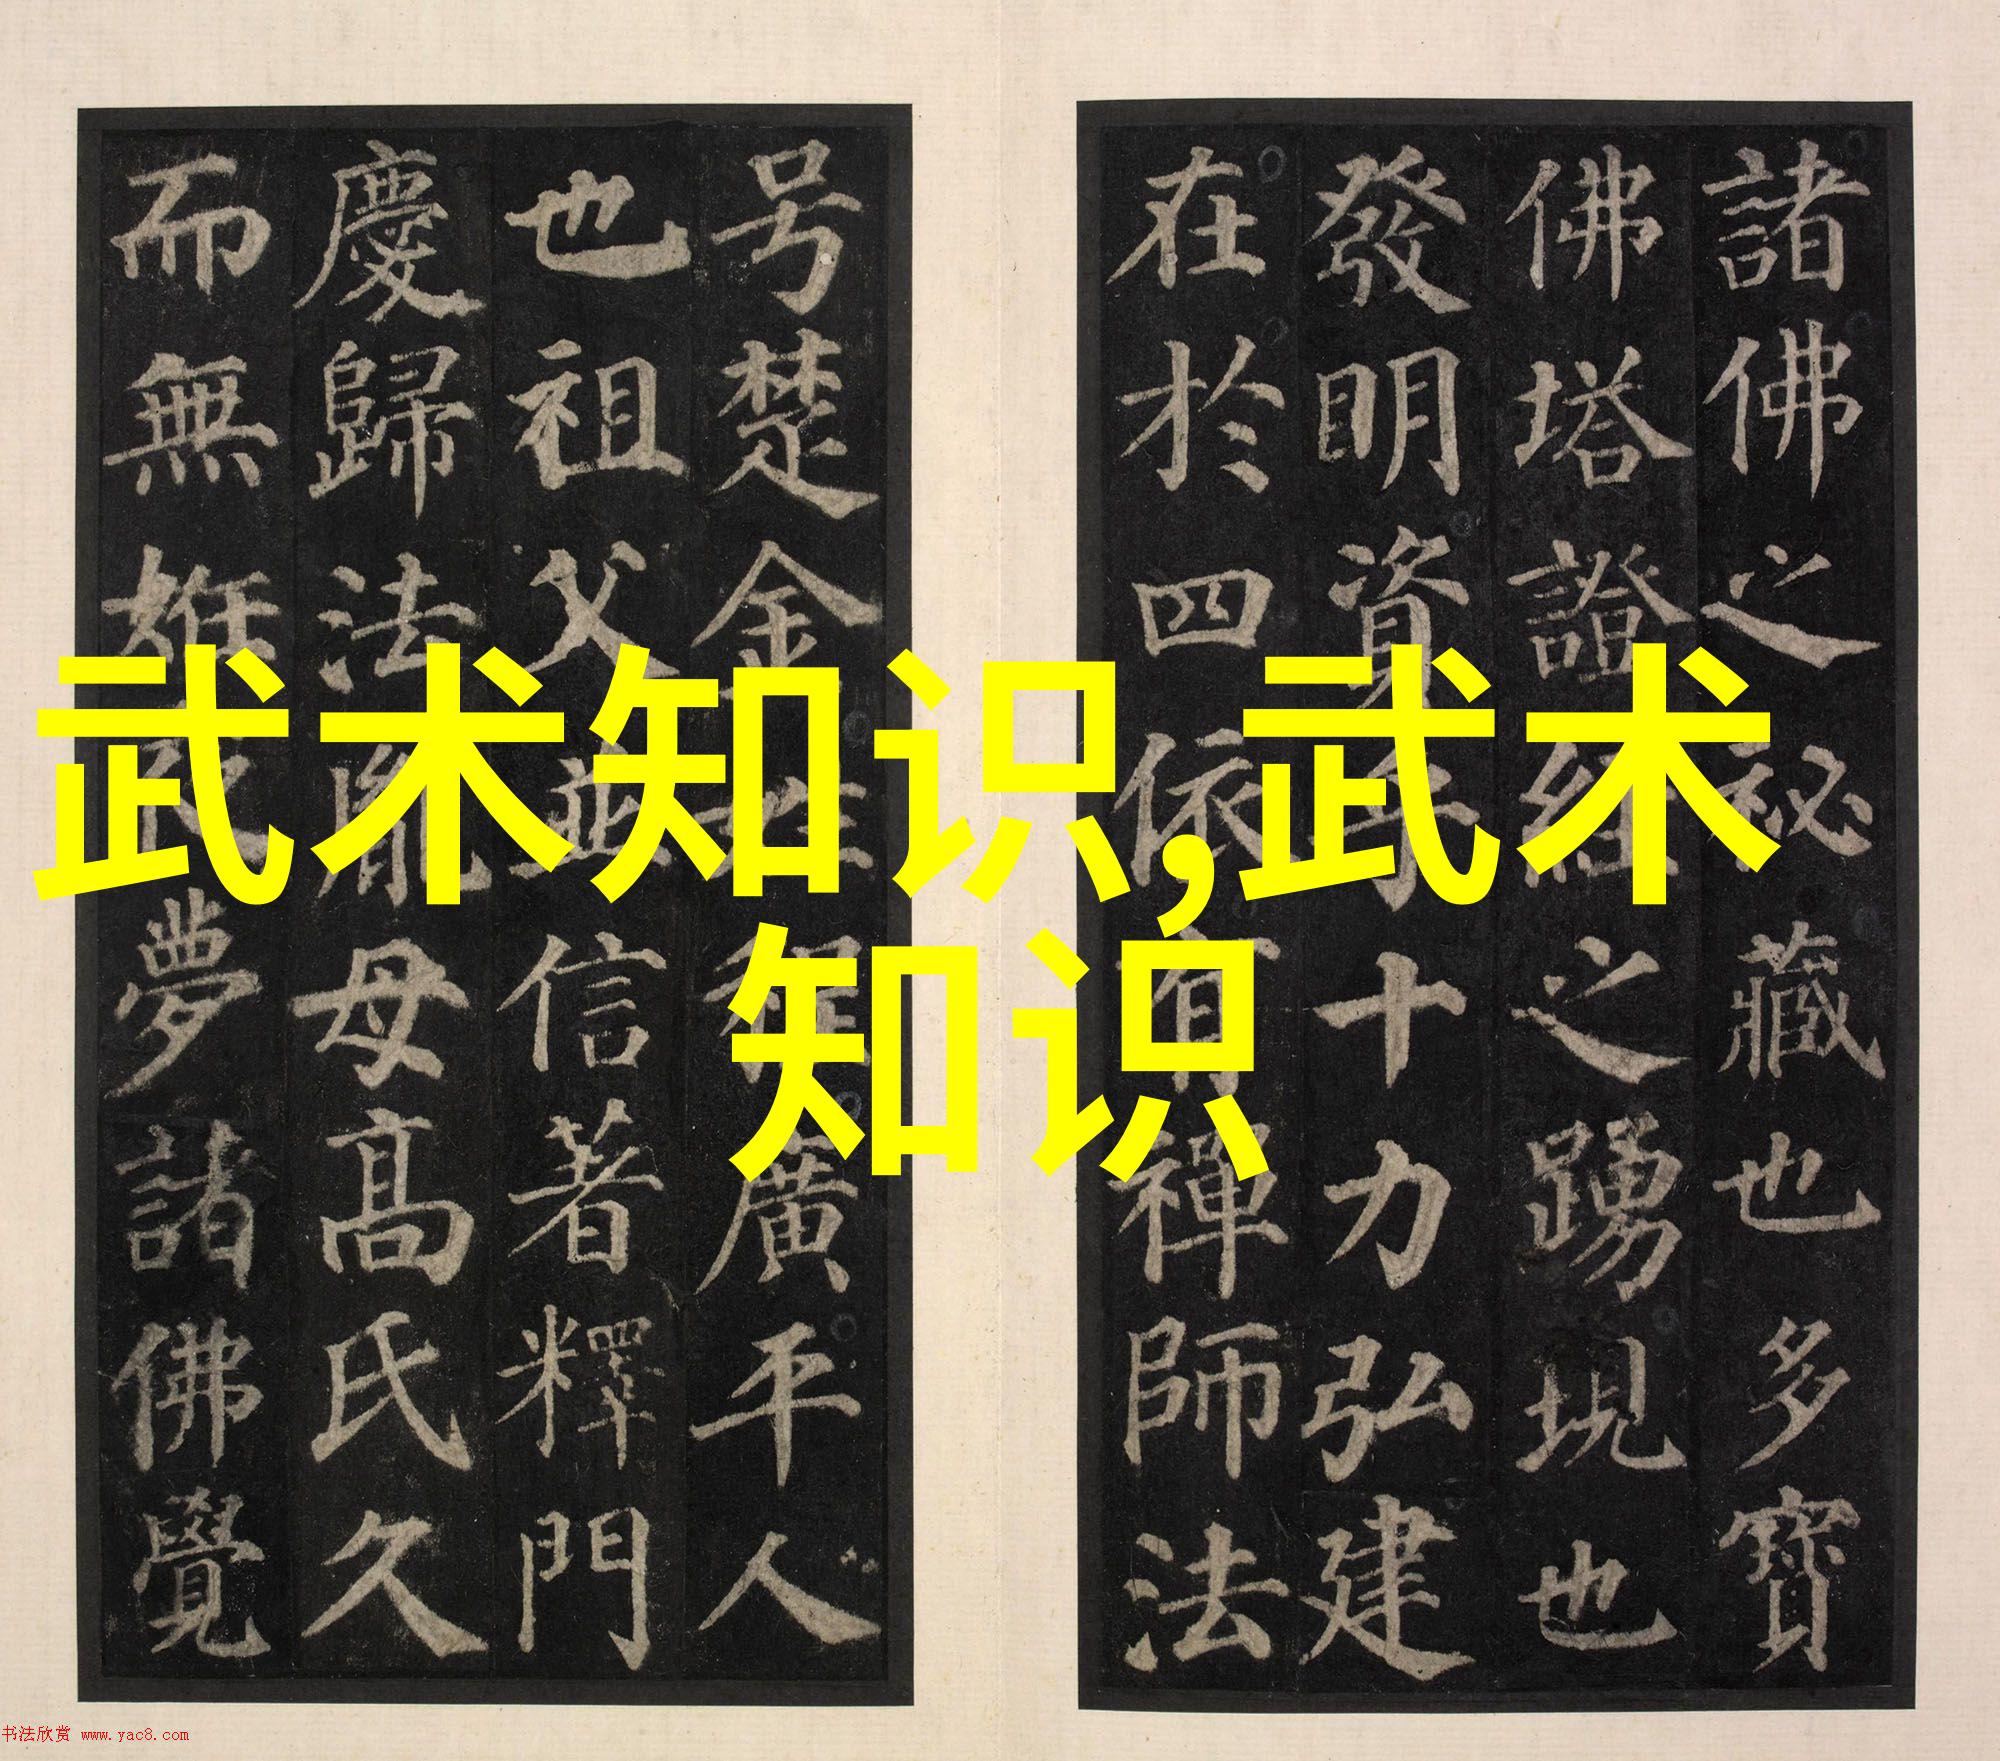 武术知识,武术
知识
諸佛之祕藏也多寶
佛塔證經之踴現也
發明資乎十力弘建
在於四依有禪師法
号楚金姓程廣平人
也祖父並信著釋門
慶歸法胤母高氏久
而無姙夜夢諸佛覺
书法欣赏 www.yac8.com